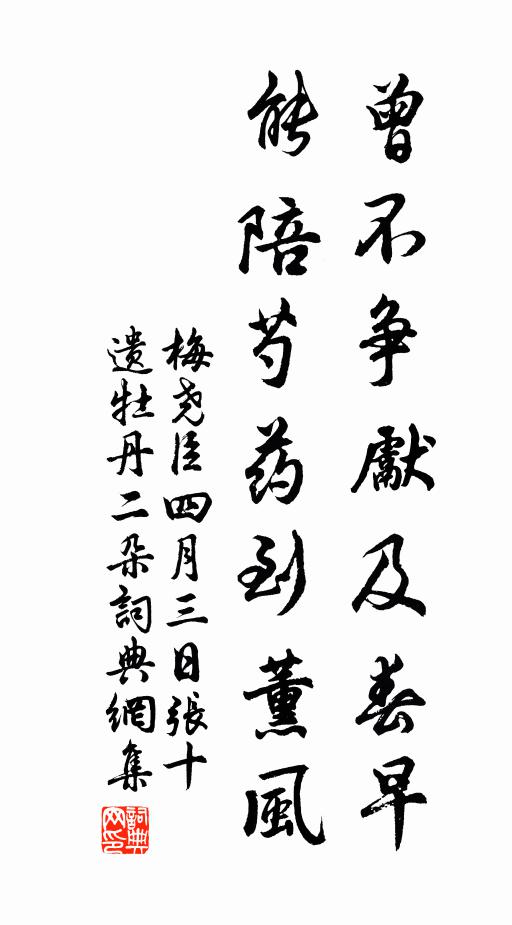 曾不争獻及春早
能陪芍药到薰風
梅尧臣四月三日張十
遺牡丹二朵詞典網集
詞典網印